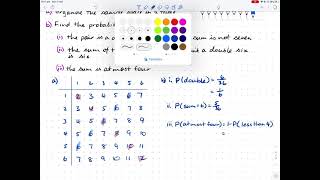 b) Find the probabi
(i) the pair is a
sum is not seven
(ii) the sum of t
t a double six
is six
(iii) the sum is at most four
a)
1 2 3 4 5 6
1 2 3 4 5 6 7
2 3 4 5 6 7 8
3 4 5 6 7 8 9
4 5 6 7 8 9 10
5 6 7 8 9 10 11
6 7 8 9 10 11 12
b) i. P(double) = 6/36
= 1/6
ii. P(sum=6) = 5/36
iii. P(at most four) = 1-P(less than 4)
=